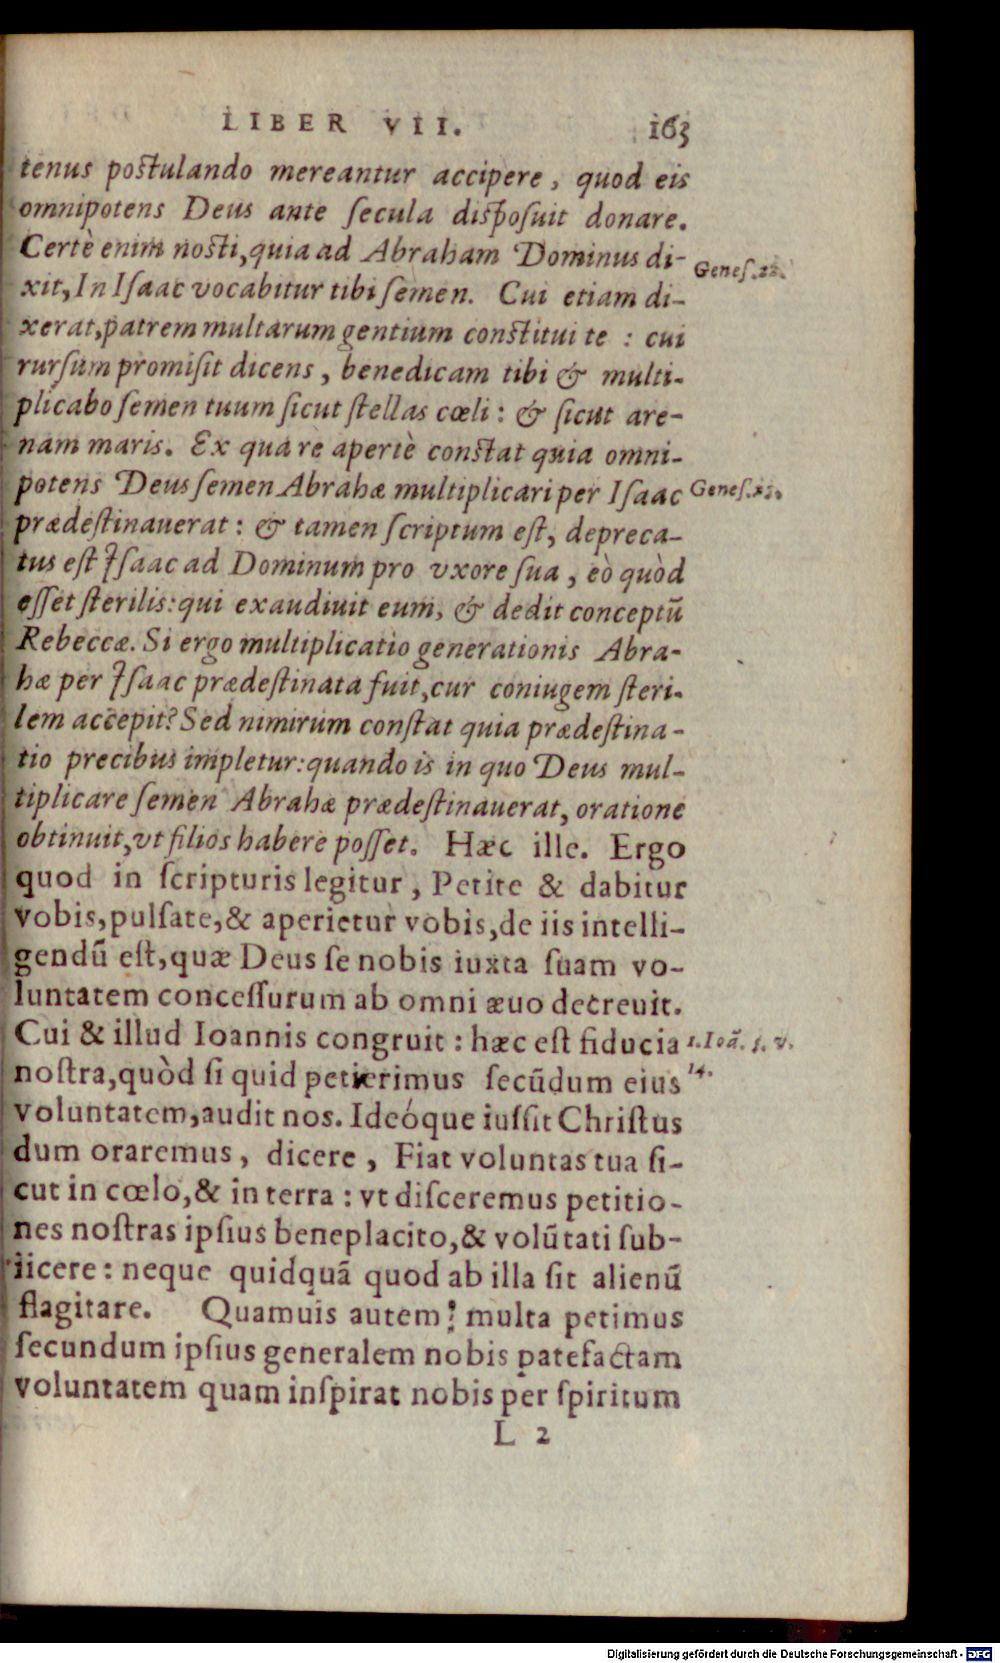 LIBER VII. 163
tenus poſtulando mereantur accipere, quod eis
omnipotens Deus ante ſecula diſpoſuit donare.
Certè enim noſti, quia ad Abraham Dominus di-
Geneſ.22.
xit, In Iſaac vocabitur tibi ſemen. Cui etiam di-
xerat, patrem multarum gentium conſtitui te : cui
rurſum promiſit dicens, benedicam tibi & multi-
plicabo ſemen tuum ſicut ſtellas cœli : & ſicut are-
nam maris. Ex qua re apertè conſtat quia omni-
potens Deus ſemen Abrahæ multiplicari per Iſaac
Geneſ.
prædeſtinauerat : & tamen ſcriptum eſt, depreca-
tus eſt Iſaac ad Dominum pro vxore ſua, eò quòd
eſſet ſterilis: qui exaudiuit eum, & dedit conceptũ
Rebeccæ. Si ergo multiplicatio generationis Abra-
hæ per Iſaac prædeſtinata fuit, cur coniugem ſteri-
lem accepit? Sed nimirum conſtat quia prædeſtina-
tio precibus impletur: quando is in quo Deus mul-
tiplicare ſemen Abrahæ prædeſtinauerat, oratione
obtinuit, vt filios habere poſſet. Hæc ille. Ergo
quod in ſcripturis legitur, Petite & dabitur
vobis, pulſate, & aperietur vobis, de iis intelli-
gendũ eſt, quæ Deus ſe nobis iuxta ſuam vo-
luntatem conceſſurum ab omni æuo decreuit.
Cui & illud Ioannis congruit : hæc eſt fiducia
1.Ioã. 5. v.
14.
noſtra, quòd ſi quid petierimus ſecũdum eius
voluntatem, audit nos. Ideóque iuſſit Chriſtus
dum oraremus, dicere, Fiat voluntas tua ſi-
cut in cœlo, & in terra : vt diſceremus petitio-
nes noſtras ipſius beneplacito, & volũtati ſub-
iicere : neque quidquã quod ab illa ſit alienũ
flagitare. Quamuis autem multa petimus
ſecundum ipſius generalem nobis patefactam
voluntatem quam inſpirat nobis per ſpiritum
L 2
Digitalisierung gefördert durch die Deutsche Forschungsgemeinschaft - DFG